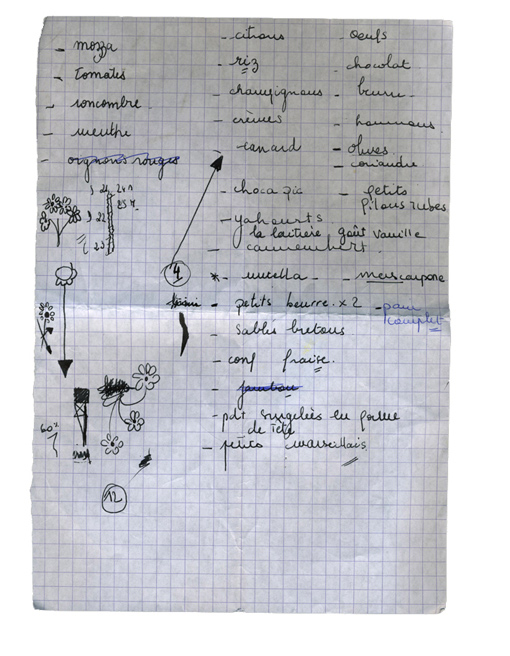 - mozza
- tomates
- concombre
- menthe
- oignons rouges
- citrons
- riz
- champignons
- crèmes
- canard
- choca pic
- yahourts
la laitière goût vanille
- camembert
* - nutella
- petits beurre. x 2
- sablés bretons
- conf fraise.
- jambon
- pdt surgelés en forme
de tête
- petits marseillais
- oeufs
- chocolat
- beurre
- hoummous
- olives
- coriandre
- petits
pilous rubes
- mascarpone
- pain
complet
4
60%
12